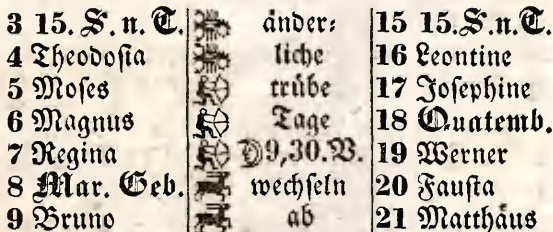 3 15. S. n. T. änder⸗ 15 15. S. n. T.
4 Theodosia liche 16 Leontine
5 Moses trübe 17 Josephine
6 Magnus Tage 18 Quatemb.
7 Regina ☽9,30.V. 19 Werner
8 Mar. Geb. wechseln 20 Fausta
9 Bruno ab 21 Matthäus